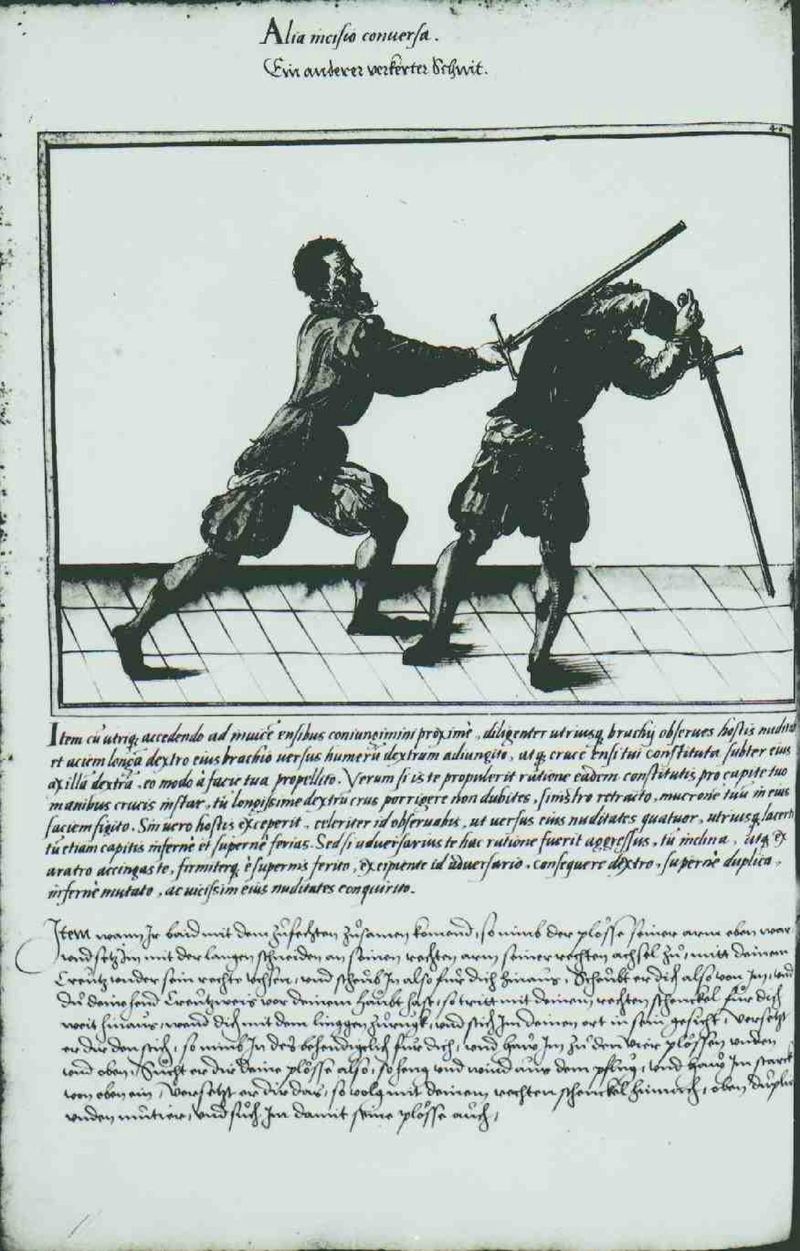 Alia incisio conversa.
Ein anderer verkerter Schnit.
Item cū utriq; accedendo ad invicē ensibus coniungimini proximè, diligenter utriusq; brachij observes hostis nudita
et aciem longā dextro eius brachio versus humerū dextrum adiungito, atq; cruce ensi tui constituta subter eius
axillā dextrā, eo modo à facie tua propellito. Verum si is te propulerit ratione eādem constitutis pro capite tuo
manibus crucis instar, tu longissime dextrū crus porrigere non dubites, sinistro retracto, mucronē tuū in eius
faciem figito. Sin vero hostis exceperit, celeriter id observabis, ut versus eius nuditates quatuor, utriusq; lacerti
tū etiam capitis infernè et supernè ferias. Sed si adversarius te hac ratione fuerit aggressus, tū inclina, atq; ex
aratro accingas te, firmiterq; è supernis ferito, excipiente id adversario, consequere dextro, supernè duplica,
infernè mutato, ac vicissim eius nuditates conquirito.
Item wann Ir baid mit dem zůfechten zůsamen komend, so nimb der plösse seiner arm eben war
und setz Im mit der langen schneiden an seinen rechten arm seiner rechten achsel zů, mitt deinem
Creütz under sein rechte Uchsen, und scheub In also für dich hinaus, Scheubt er dich also von Im, und
du deine hend Creützweis vor deinem haubt hast, so tritt mit deinem rechten schenckel für dich
weit hinaus, wend dich mit dem linggen zůrugk, und stich Im deinen ort in sein gesicht, Versetzt
er dir den stich, so nimb In des behendigelich für dich, und haw Im zů den vier plössen unden
und oben, Sůcht er dir deine plösse also, so heng und wind aus dem pflůg, und haw Im starck
von oben ein, Versetzt er dir das, so volg mit deinem rechten schenckel hinnach, oben duplier
unden mutier, und sůch Im damit seine plösse auch,